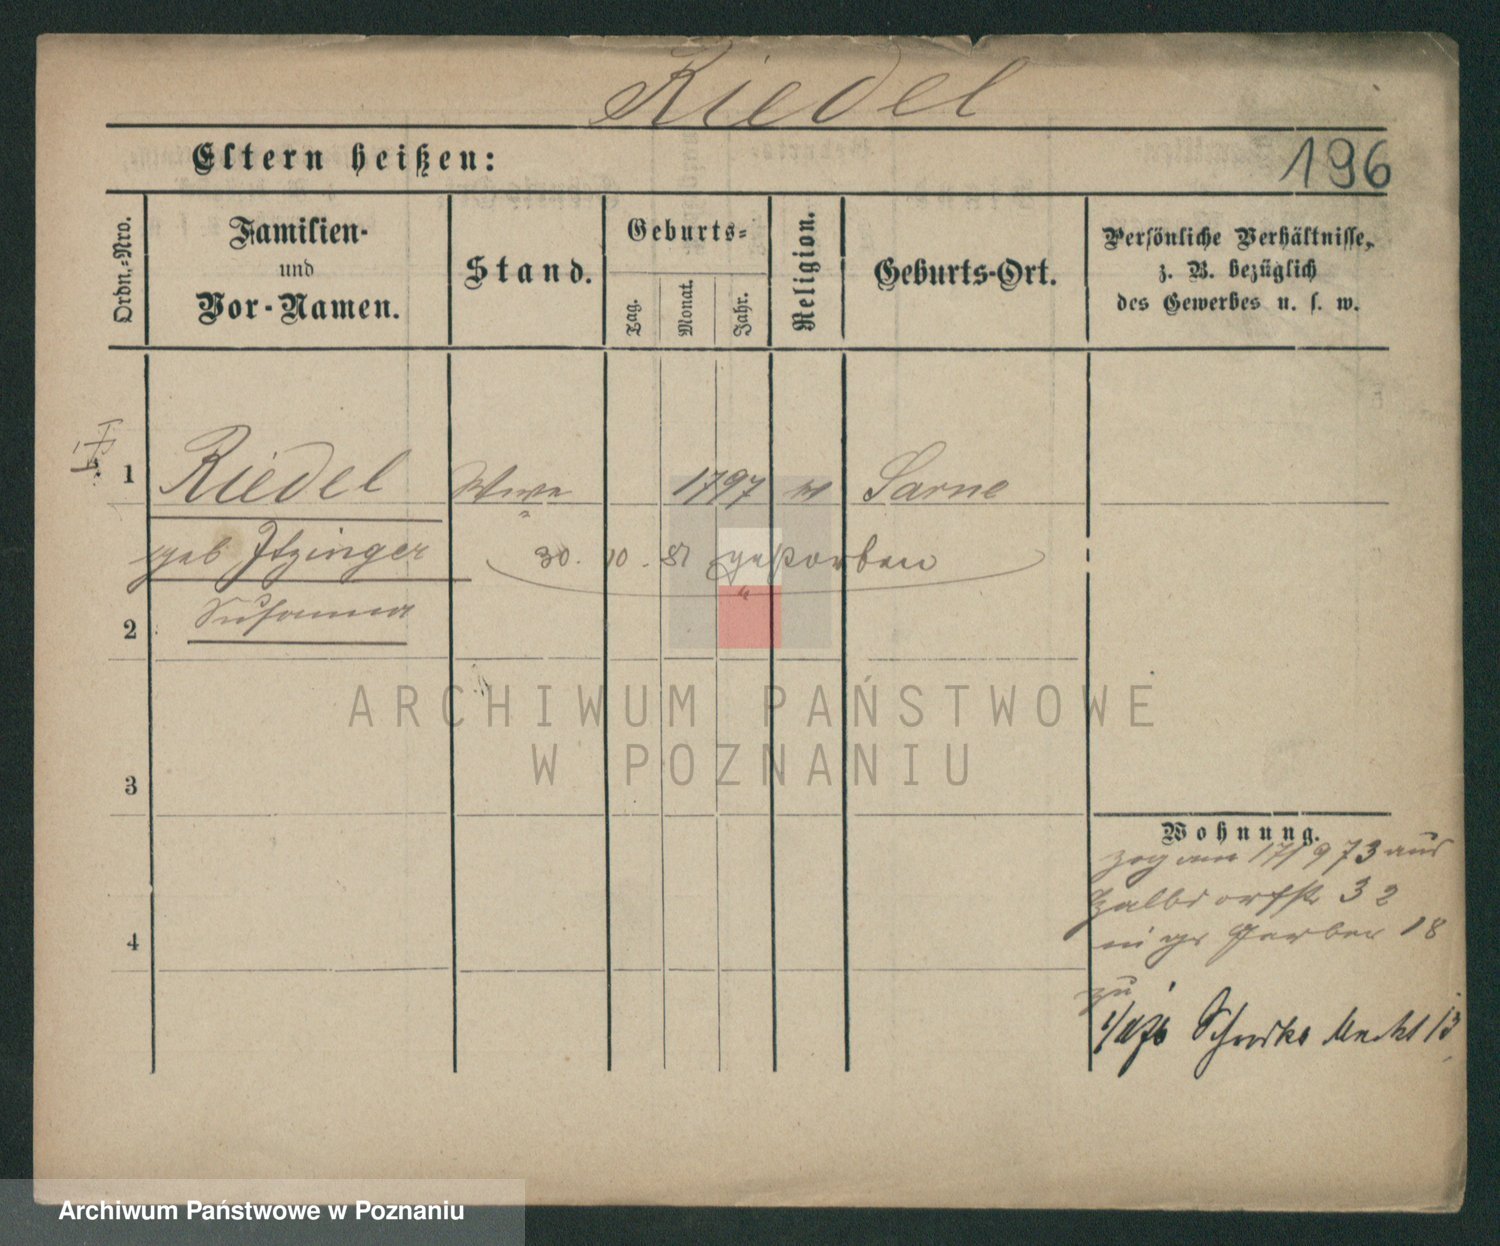 Riedel
Eltern heißen:
196
Ordn.-Nro.
Familien-
und
Vor-Namen.
Stand.
Geburts-
Tag.
Monat.
Jahr.
Religion.
Geburts-Ort.
Persönliche Verhältnisse,
z. B. bezüglich
des Gewerbes u. s. w.
1
Riedel
Wwe
1797
Sarne
geb Itzinger
30. 10. 81 gestorben
2
Susanna
ARCHIWUM PAŃSTWOWE
W POZNANIU
3
Wohnung.
zog am 17/9 73 aus
32
4
Gerber 18
zu
13
Archiwum Państwowe w Poznaniu